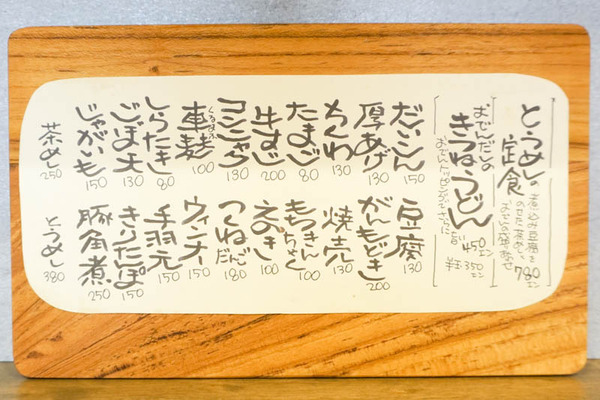 とうめしの
定食
煮込み豆腐を
のせた茶めし、
おでん5種盛り合わせ
780エン
おでんだしの
きつねうどん
おでんトッピングでさらに
旨!
450エン
半玉 350エン
だいこん 150
厚あげ 130
ちくわ 130
たまご 80
牛すじ 200
コンニャク 130
くるまふ
車麩 100
しらたき 80
ごぼ天 130
じゃがいも 150
茶めし 250
豆腐 130
がんもどき 200
焼売 130
もちきんちゃく 100
えのき 100
つくねだんご 180
ウィンナー 150
手羽元 150
きりたんぽ 150
豚角煮 250
とうめし 380